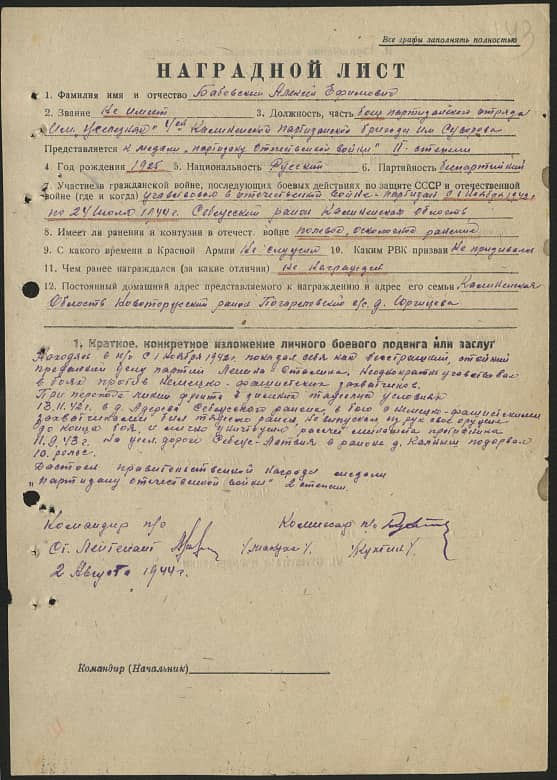 143
Все графы заполнять полностью
НАГРАДНОЙ ЛИСТ
1. Фамилия имя и отчество Бабовский Алексей Ефимович
2. Звание Не имеет 3. Должность, часть боец партизанского отряда
Калининской партизанской бригады им Суворова
Представляется к медали „партизану Отечественной войны" II степени
4 Год рождения 1925 5. Национальность Русский 6. Партийность беспартийный
7. Участие в гражданской войне, последующих боевых действиях по защите СССР и отечественной
войне (где и когда) участвовал в отечественной войне - партизан с 1 Ноября 1942г.
по 24 Июля 1944г. Себежский район Калининская область
8. Имеет ли ранения и контузии в отечест. войне ранение
9. С какого времени в Красной Армии Не служит 10. Каким РВК призван Не призывался
11. Чем ранее награждался (за какие отличия) Не награжден
12. Постоянный домашний адрес представляемого к награждению и адрес его семьи Калининская
Область Новоторжский район с/с. д.
1. Краткое, конкретное изложение личного боевого подвига или заслуг
Находясь в п/о с 1 Ноября 1942г. показал себя как стойкий
преданный делу партии Ленина Сталина. Неоднократно участвовал
в боях против Немецко-фашистских захватчиков.
При переходе линии фронта в зимних условиях
13.11.42г. в д. Себежского района, в бою с немецко-фашистскими
захватчиками был тяжело ранен не выпускал из рук свое оружие
до конца боя, и лично уничтожил расчет противника
11.9.43г. На жел. дороге Себеж-Латвия в районе д. подорвал
10. рельс.
Достоин правительственной награды медали
„Партизану отечественной войны" 2 степени.
Командир п/о Комиссар п/о
Ст. Лейтенант
2 Августа 1944г.
Командир (Начальник)